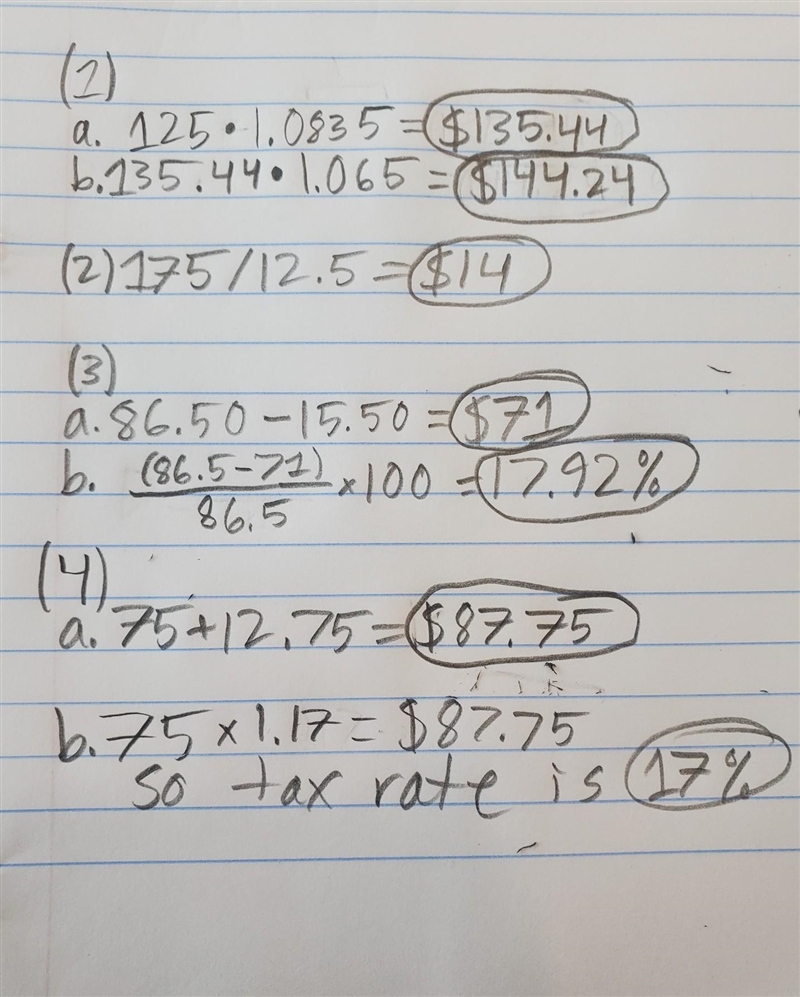 (1)
a. 125 • 1.0835 = $135.44
b. 135.44 • 1.065 = $144.24
(2) 175/12.5 = $14
(3)
a. 86.50 - 15.50 = $71
b. (86.5-71)/86.5 × 100 = 17.92%
(4)
a. 75+12.75 = $87.75
b. 75 × 1.17 = $87.75
so tax rate is 17%